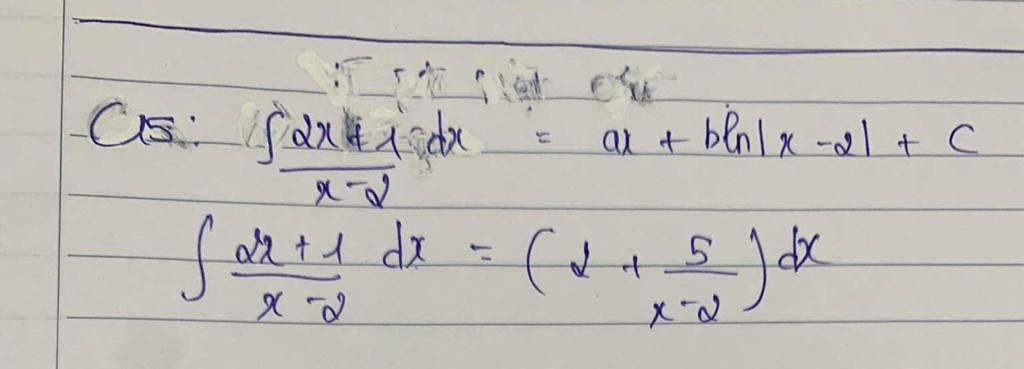 Q15: ∫ 2x+1/x-2 dx = ax + bln|x-2| + C
∫ 2x+1/x-2 dx = (2 + 5/x-2) dx